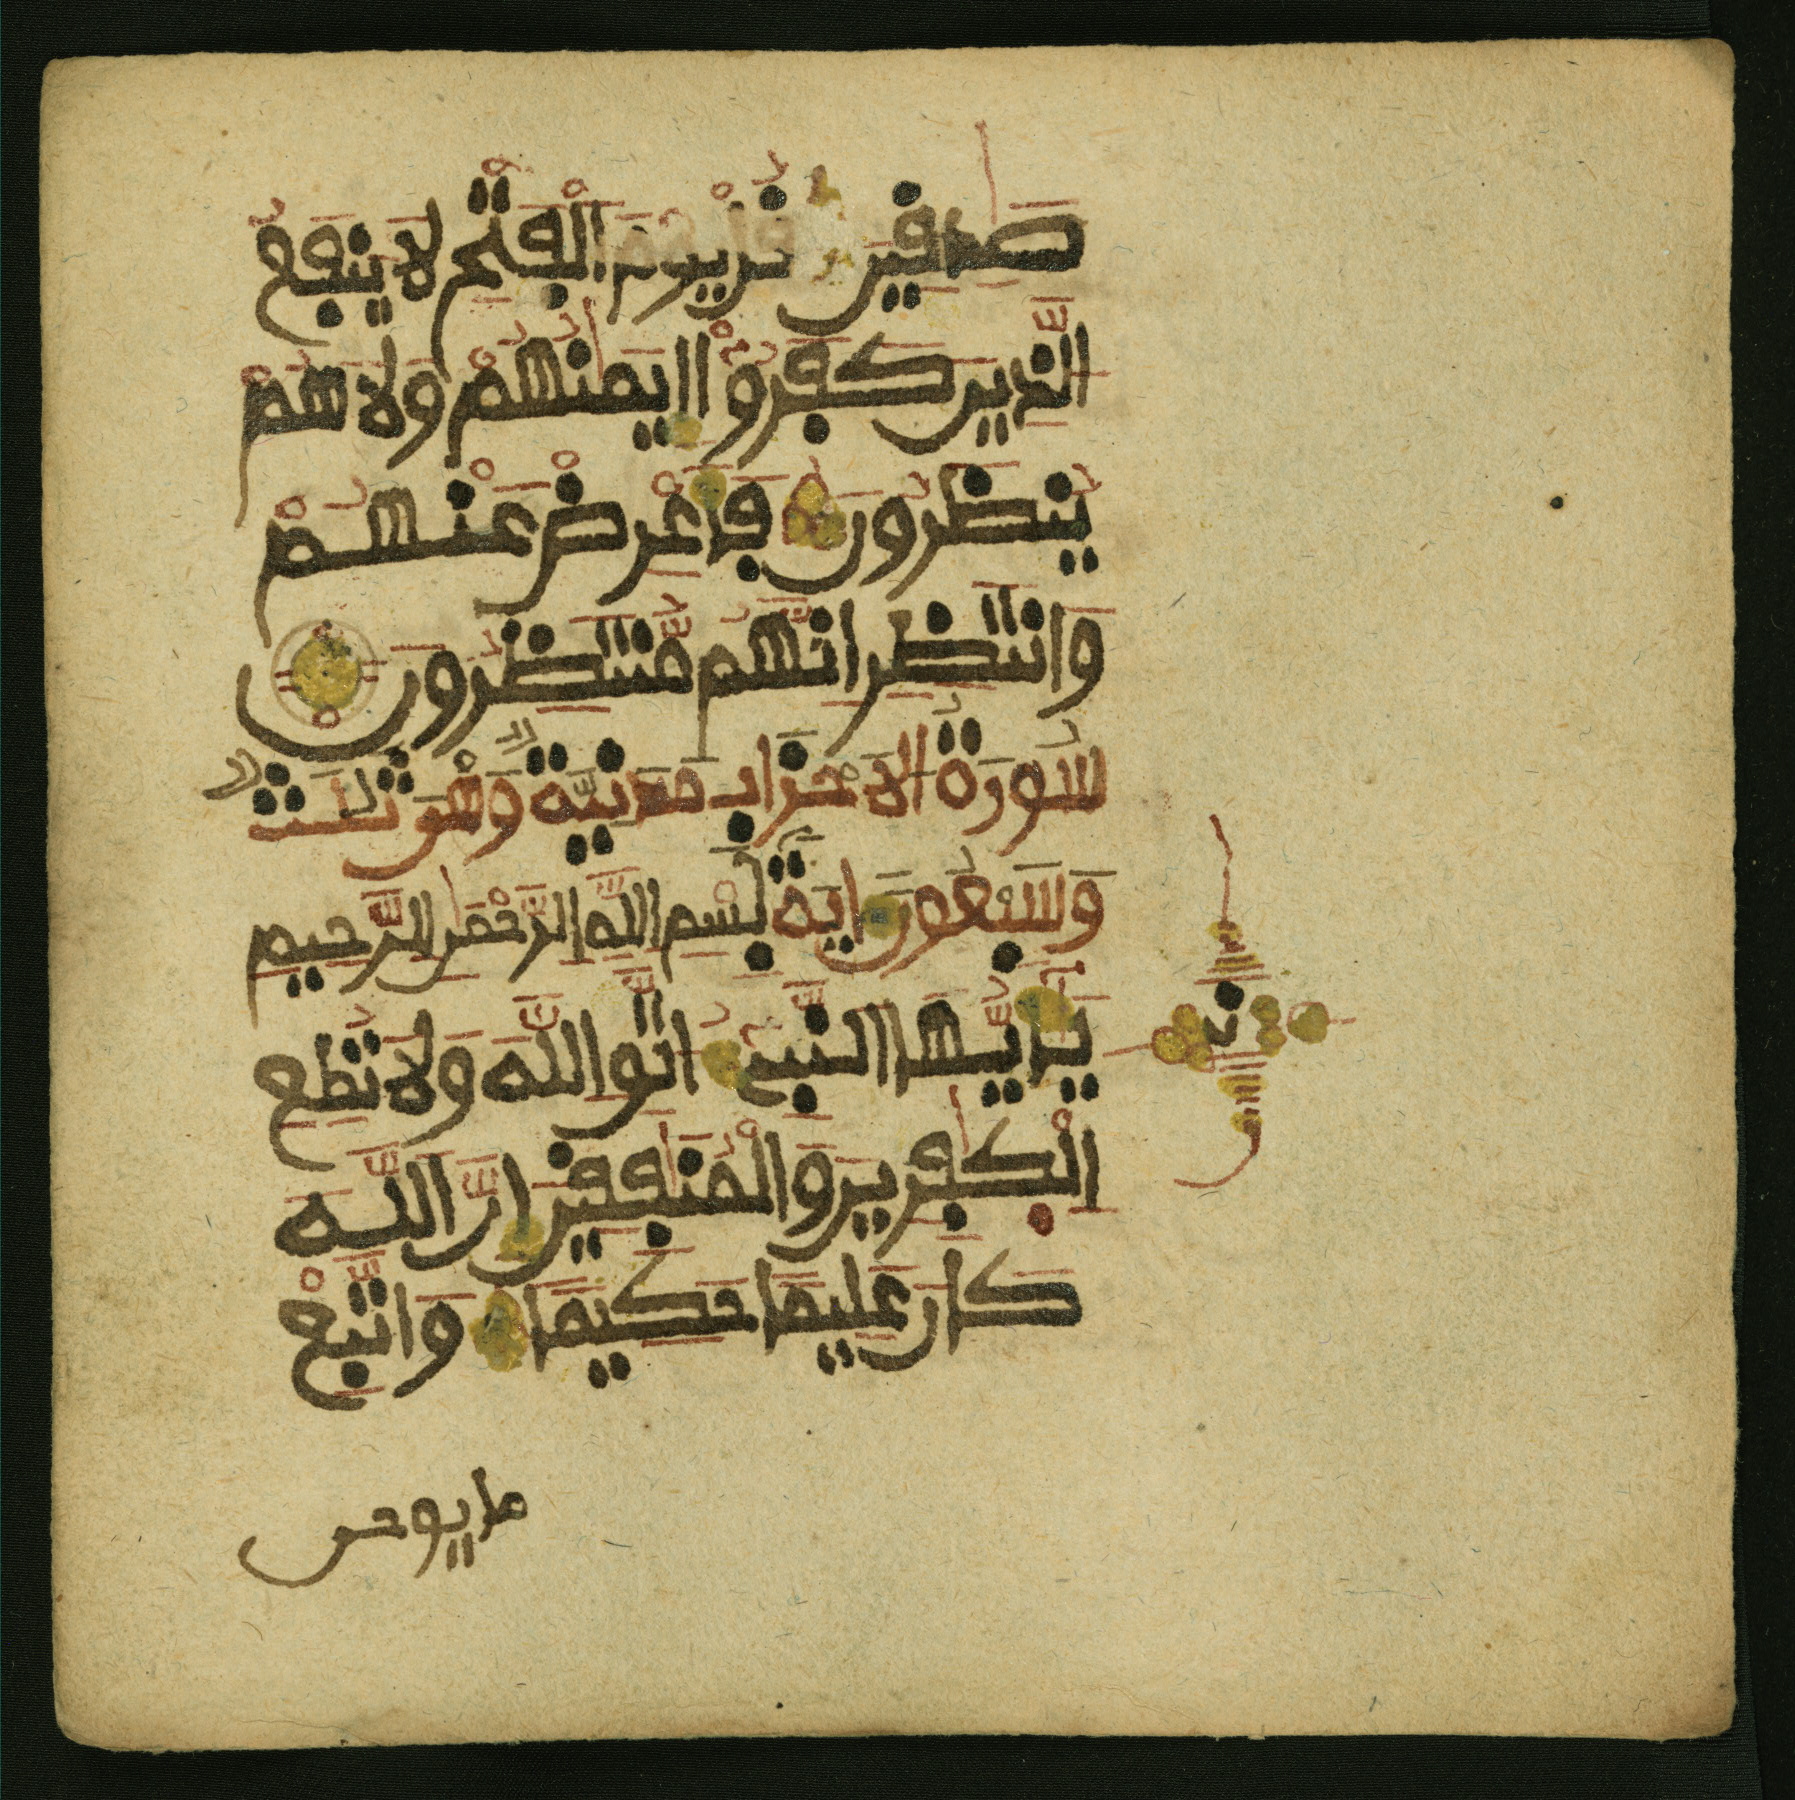 صَٰدِفِينَ فُلْ يَوْمَ اَلْفَتْحِ لَا يَنفَعُ
اَلَّذِينَ كَفَرُوٓاْ إِيمَٰنُهُمْ وَلَا هُمْ
يُنظَرُونَ فَأَعْرِضْ عَنْهُمْ
وَانتَظِرِ انَّهُم مُّنتَظِرُونَ
سُورَةُ الاَحْزَابِ مَدَنِيَّةٌ وَهْىَ ثَلَثٌ
وَسَبْعُونَ ايَةً بِسْمِ اللَّهِ الرَّحْمَٰنِ الرَّحِيمِ
يَٰٓأَيُّهَا النَّبِىُٓ اتَّوِ اللَّهَ وَلَا تُطِعِ
اِلْكَٰفِرِينَ وَالْمُنَٰفِفِينَ إِنَّ اللَّهَ
كَانَ عَلِيماً حَكِيماً وَاتَّبِعْ
ن
ما يوحى